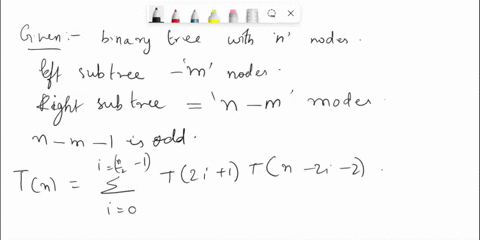 Given:- binary tree with 'n' nodes.
left subtree - 'm' nodes.
Right subtree = 'n-m' nodes.
n-m-1 is odd.
T(n) = \sum_{i=0}^{i=(\frac{n}{2}-1)} T(2i+1) T(n-2i-2).